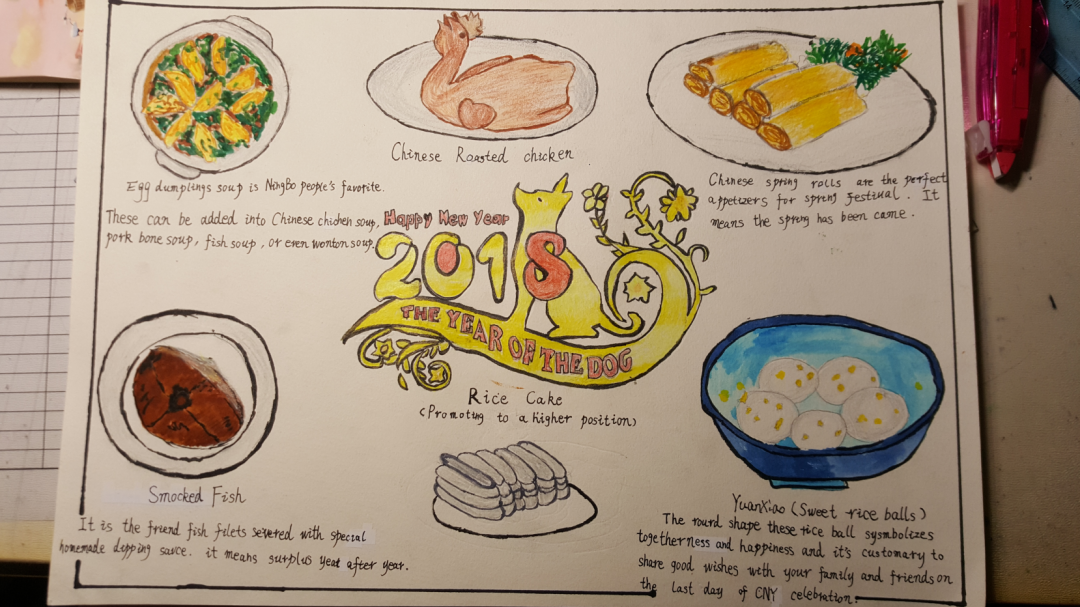 Chinese Roasted chicken
Egg dumplings soup is NingBo people's favorite.
These can be added into Chinese chichen soup,
pork bone soup, fish soup, or even wonton soup.
Chinese spring rolls are the perfect
appetizers for spring Festival. It
means the spreng has been came.
Happy New Year
2018
THE YEAR OF THE DOG
Rice Cake
(Promoting to a higher position)
Smocked Fish
It is the friend fish filets severed with special
homemade dipping sauce. it means surplus yeat after year.
YuanXiao (Sweet rice balls)
The round shape these rice ball sysmbolizes
togetherness and happiness and it's customary to
share good wishes with your family and friends on
the last day of CNY celebration.